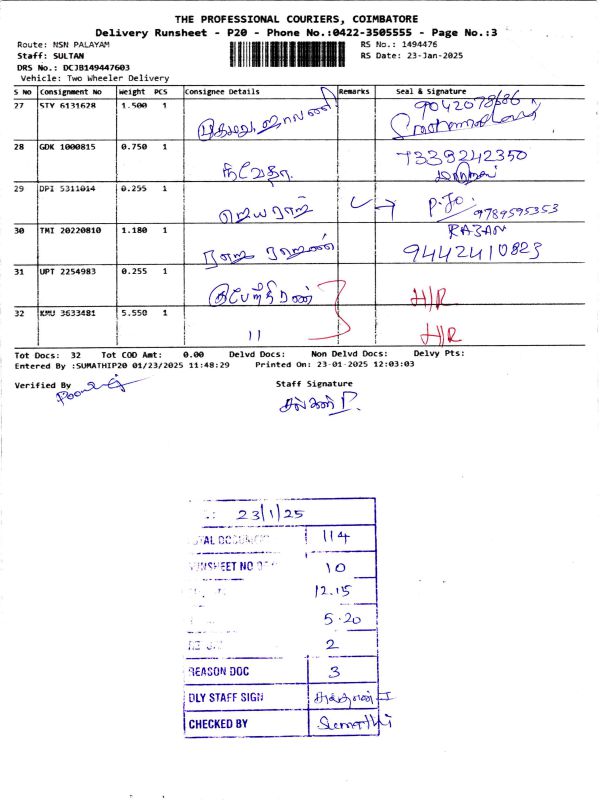 THE PROFESSIONAL COURIERS, COIMBATORE
Delivery Runsheet - P20 - Phone No.:0422-3505555 - Page No.:3
Route: NSN PALAYAM
RS No.: 1494476
Staff: SULTAN
RS Date: 23-Jan-2025
DRS No.: DCJB149447603
Vehicle: Two Wheeler Delivery
S No Consignment No Weight PCS Consignee Details Remarks Seal & Signature
27 STY 6131628 1.500 1 9042078686
28 GDK 1000815 0.750 1 7339242350
29 DPI 5311014 0.255 1 ஜெயராஜ் 9789595353
30 TMI 20220810 1.180 1 RAJAN
9442410823
31 UPT 2254983 0.255 1 H/R
32 KMU 3633481 5.550 1 11 H/R
Tot Docs: 32 Tot COD Amt: 0.00 Delvd Docs: Non Delvd Docs: Delvy Pts:
Entered By :SUMATHIP20 01/23/2025 11:48:29 Printed On: 23-01-2025 12:03:03
Verified By Staff Signature
23/1/25
114
10
12.15
5.20
2
REASON DOC 3
DLY STAFF SIGN
CHECKED BY Sumathi